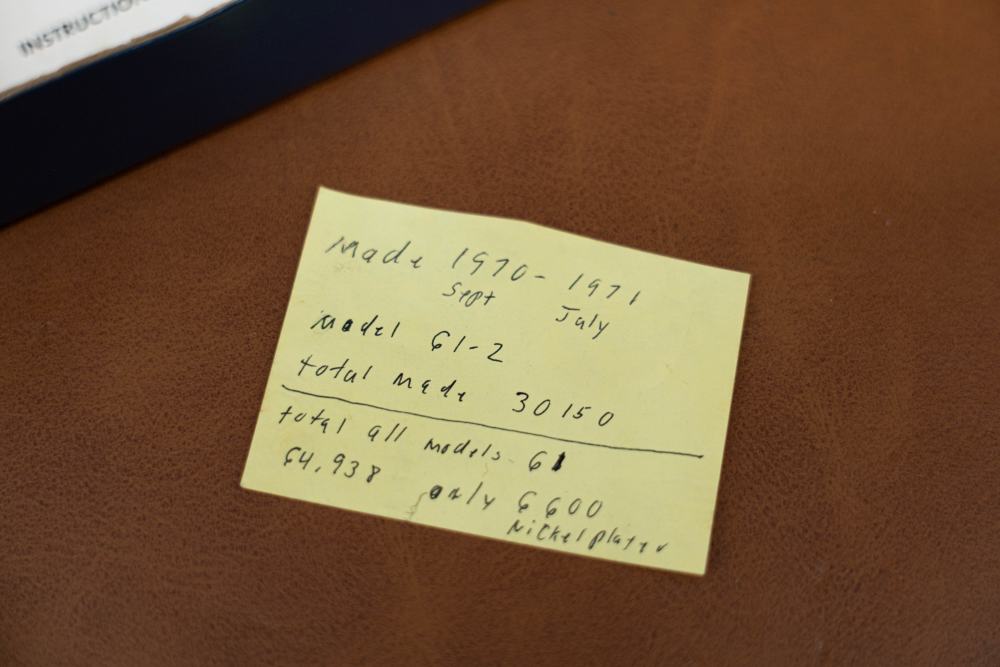 INSTRUCTION
Made 1970 - 1971
Sept July
Model 61-2
total made 30150
total all models 61
64,938 only 6600
Nickelplater